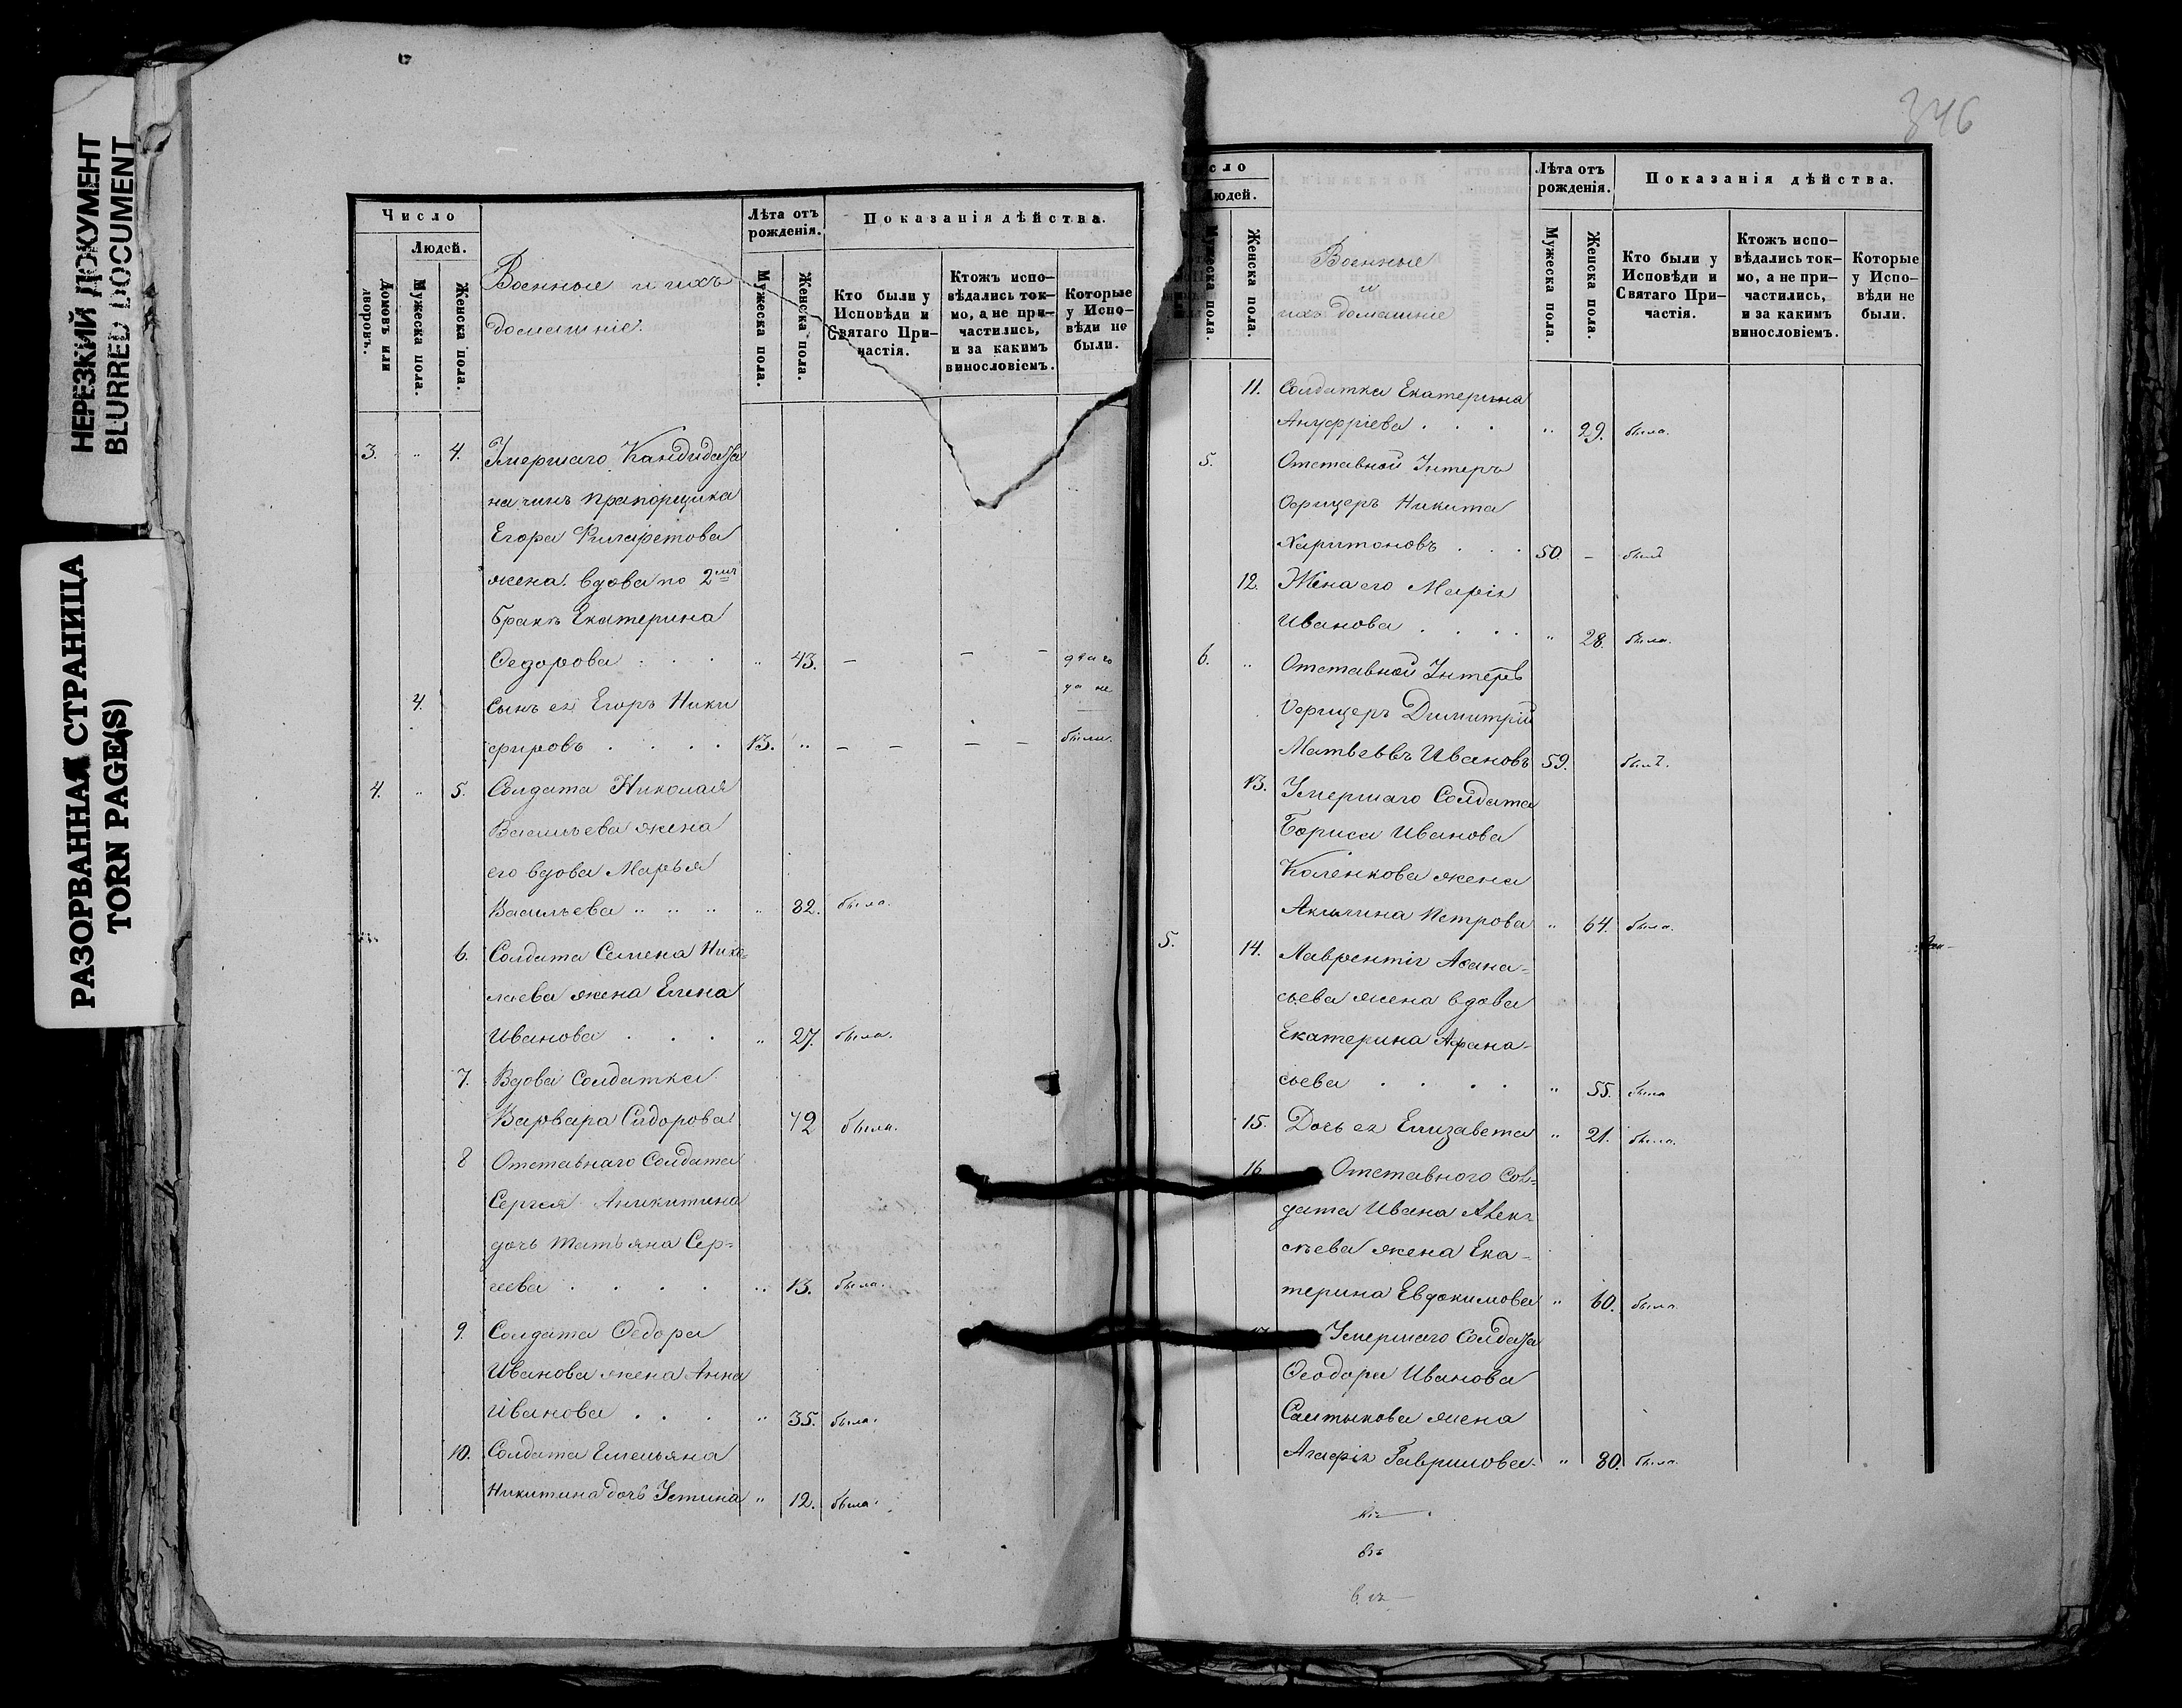 НЕРЕЗКИЙ ДОКУМЕНТ
BLURRED DOCUMENT
РАЗОРВАННАЯ СТРАНИЦА
TORN PAGE(S)
Число
Людей.
Домовъ или дворовъ.
Мужеска пола.
Женска пола.
Военные и ихъ
домашніе.
Лѣта отъ
рожденія.
Мужеска пола.
Женска пола.
Показанія дѣйства.
Кто были у
Исповѣди и
Святаго При-
частія.
Ктожъ испо-
вѣдались ток-
мо, а не при-
частились,
и за какимъ
винословіемъ.
Которые
у Испо-
вѣди не
были.
3. " 4. Умершаго Кандидата
на чинъ прапорщика
Егора Филаретова
жена вдова по 2мъ
бракѣ Екатерина
Ѳедорова . . . " 43. – – – два го
да не
4. Сынъ ея Егоръ Ники
фировъ . . . . 13. " – – – – были.
4. " 5. Солдата Николая
Васильева жена
его вдова Марья
Васильева " " " " 82. была.
6. Солдата Семена Нико-
лаева жена Елена
Иванова . . . " 27. была.
7. Вдова Солдатка
Варвара Сидорова 42 была.
8 Отставнаго Солдата
Сергея Аникитина
дочь Татьяна Сер-
геева . . . . " 13. была.
9. Солдата Ѳедора
Иванова жена Анна
Иванова . . . " 35. была.
10. Солдата Емельяна
Никитина дочь Устина " 12. была.
346
сло
Людей.
Мужеска пола.
Женска пола.
Военные
и
ихъ домашніе
Лѣта отъ
рожденія.
Мужеска пола.
Женска пола.
Показанія дѣйства.
Кто были у
Исповѣди и
Святаго При-
частія.
Ктожъ испо-
вѣдались ток-
мо, а не при-
частились,
и за какимъ
винословіемъ.
Которые
у Испо-
вѣди не
были.
11. Солдатка Екатерина
Ануфріева . . . " 29. была.
5. Отставной Унтеръ
Офицеръ Никита
Харитоновъ . . . 50. – былъ
12. Жена его Марія
Иванова . . . . " 28. была.
6. " Отставной Унтеръ
Офицеръ Димитрій
Матвеевъ Ивановъ 59. былъ.
13. Умершаго Солдата
Бориса Иванова
Каленкова жена
Акилина Петрова " 64. была.
5. 14. Лаврентія Аѳана-
сьева жена вдова
Екатерина Афана-
сьева . . . . " 55. была
15. Дочь ея Елизавета " 21. была.
16 Отставного Сол-
дата Ивана Алек-
сѣева жена Ека-
терина Евдокимова " 60. была.
17 Умершаго Солдата
Ѳеодора Иванова
Салтыкова жена
Агафія Гаврилова " 80. была.